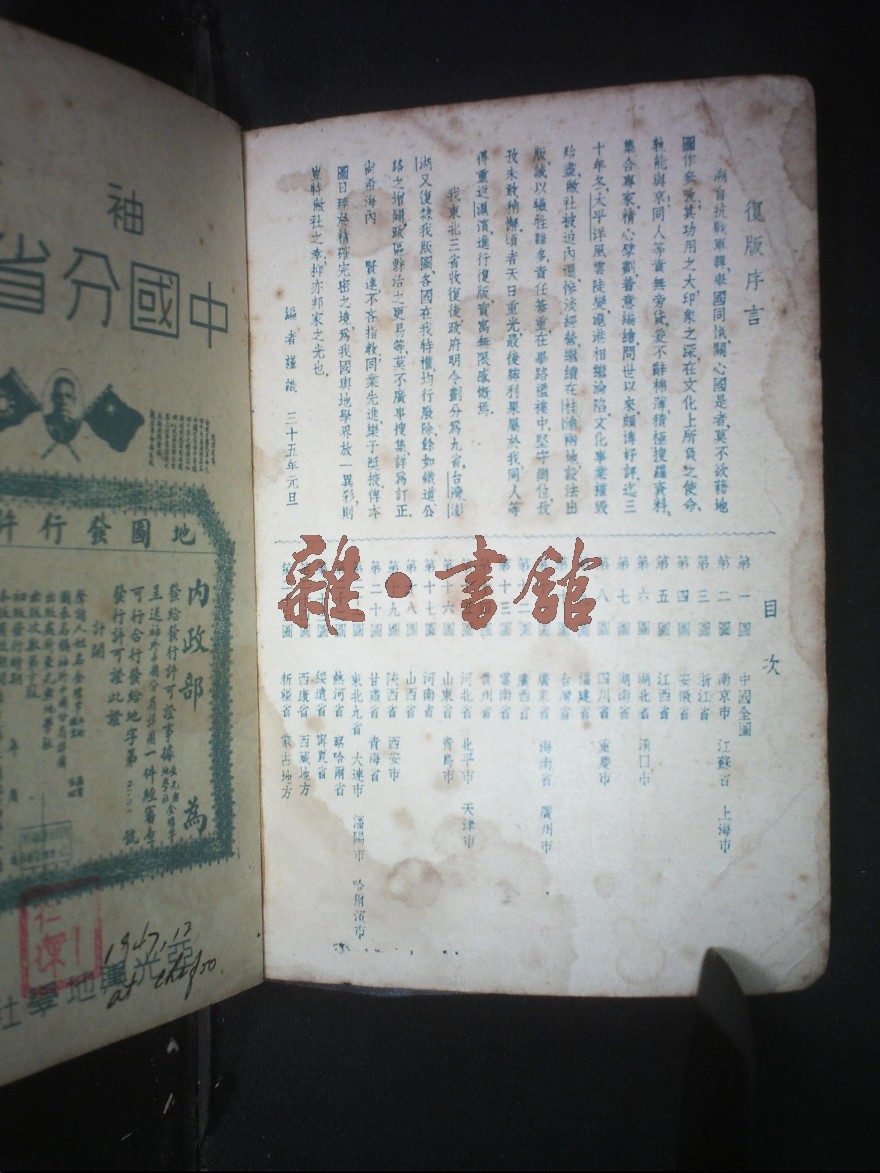 復版序言
溯自抗戰軍興舉國同愾關心國是者莫不欲藉地
圖作參攷其功用之大印象之深在文化上所負之使命
集合專家精心擘劃着意編繪問世以來頗博好評迄三
十年冬太平洋風雲陡變滬港相繼淪陷文化事業摧毀
殆盡敝社被迫內遷慘淡經營繼續在桂渝兩地設法出
版誠以犧牲雖多責任綦重在篳路襤褸中堅守崗位投
孜未敢稍懈頃者天日重光最後勝利果屬於我同人等
得重返滬濱進行復版實寓無限感慨焉
我東北三省收復後政府明令劃分為九省台灣澎
湖又復隸我版圖各國在我特權均行廢除餘如鐵道公
路之增闢政區縣治之更易等莫不廣事搜集詳為訂正
尚希海內 賢達不吝指教同業先進樂予挺掖俾本
圖日臻於精確完密之境為我國輿地學界放一異彩則
豈特敝社之幸抑亦邦家之光也
編者謹識 三十五年元旦
目次
第一圖 中國全圖
第二圖 南京市 江蘇省 上海市
第三圖 浙江省
第四圖 安徽省
第五圖 江西省
第六圖 湖北省 漢口市
第七圖 湖南省
第八圖 四川省 重慶市
福建省
台灣省
廣東省 海南省 廣州市
廣西省
第十三圖 雲南省
貴州省
第十六圖 河北省 北平市 天津市
第十七圖 山東省 青島市
河南省
山西省
第十九圖 陝西省 西安市
第二十圖 甘肅省 青海省
東北九省 大連市 瀋陽市 哈爾濱市
熱河省 察哈爾省
綏遠省 寧夏省
西康省 西藏地方
新疆省 蒙古地方
雜·書館
袖
中國分省
地圖發行許
內政部 為
發給發行許可證事據
呈送袖珍中國分省詳圖一件經審查
可行合行發給地字第 號
發行許可證此證
計開
亞光輿地學社
1947.12
at chefoo.